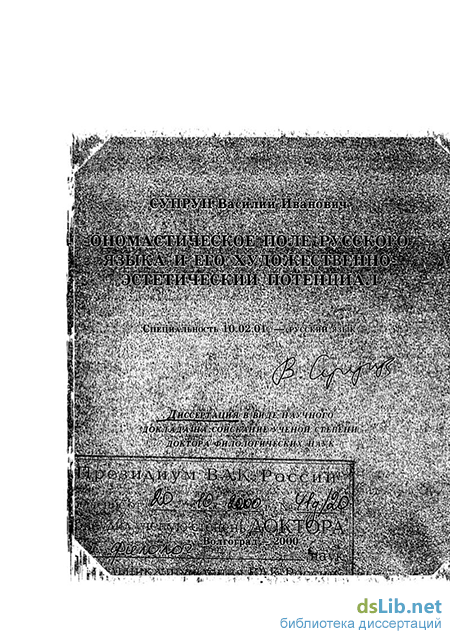 СУПРУН Василий Иванович
ОНОМАСТИЧЕСКОЕ ПОЛЕ РУССКОГО
ЯЗЫКА И ЕГО ХУДОЖЕСТВЕННО-
ЭСТЕТИЧЕСКИЙ ПОТЕНЦИАЛ
Специальность 10.02.01 — русский язык
В. Супрун
Диссертация в виде научного
доклада на соискание ученой степени
доктора филологических наук
Президиум ВАК России
20 10 2000
ДОКТОРА
Волгоград - 2000
наук
dsLib.net
библиотека диссертаций